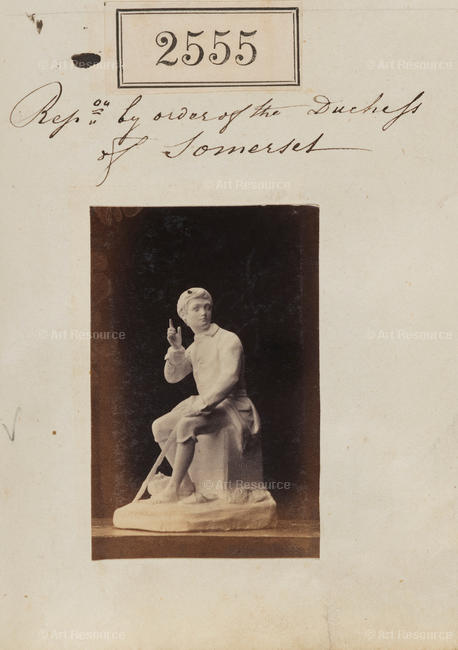 2555
Rep.ᵒⁿ by order of the Duchess
of Somerset
© Art Resource
© Art Resource
© Art Resource
© Art Resource
© Art Resource
© Art Resource
© Art Resource
© Art Resource
© Art Resource